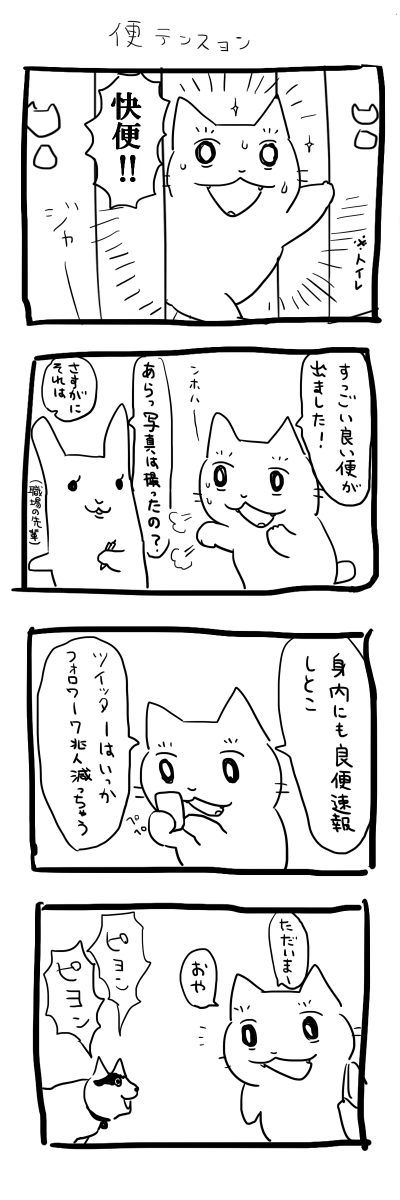 便テンション
快便!!
ジャ
※トイレ
すっごい良い便が
出ました！
ンホハ
あらっ写真は撮ったの？
さすがに
それは
(職場の先輩)
身内にも良便速報
しとこ
ツイッターはいっか
フォロワー7兆人減っちゃう
ペペ
ただいまー
おや
ピョン
ピョン